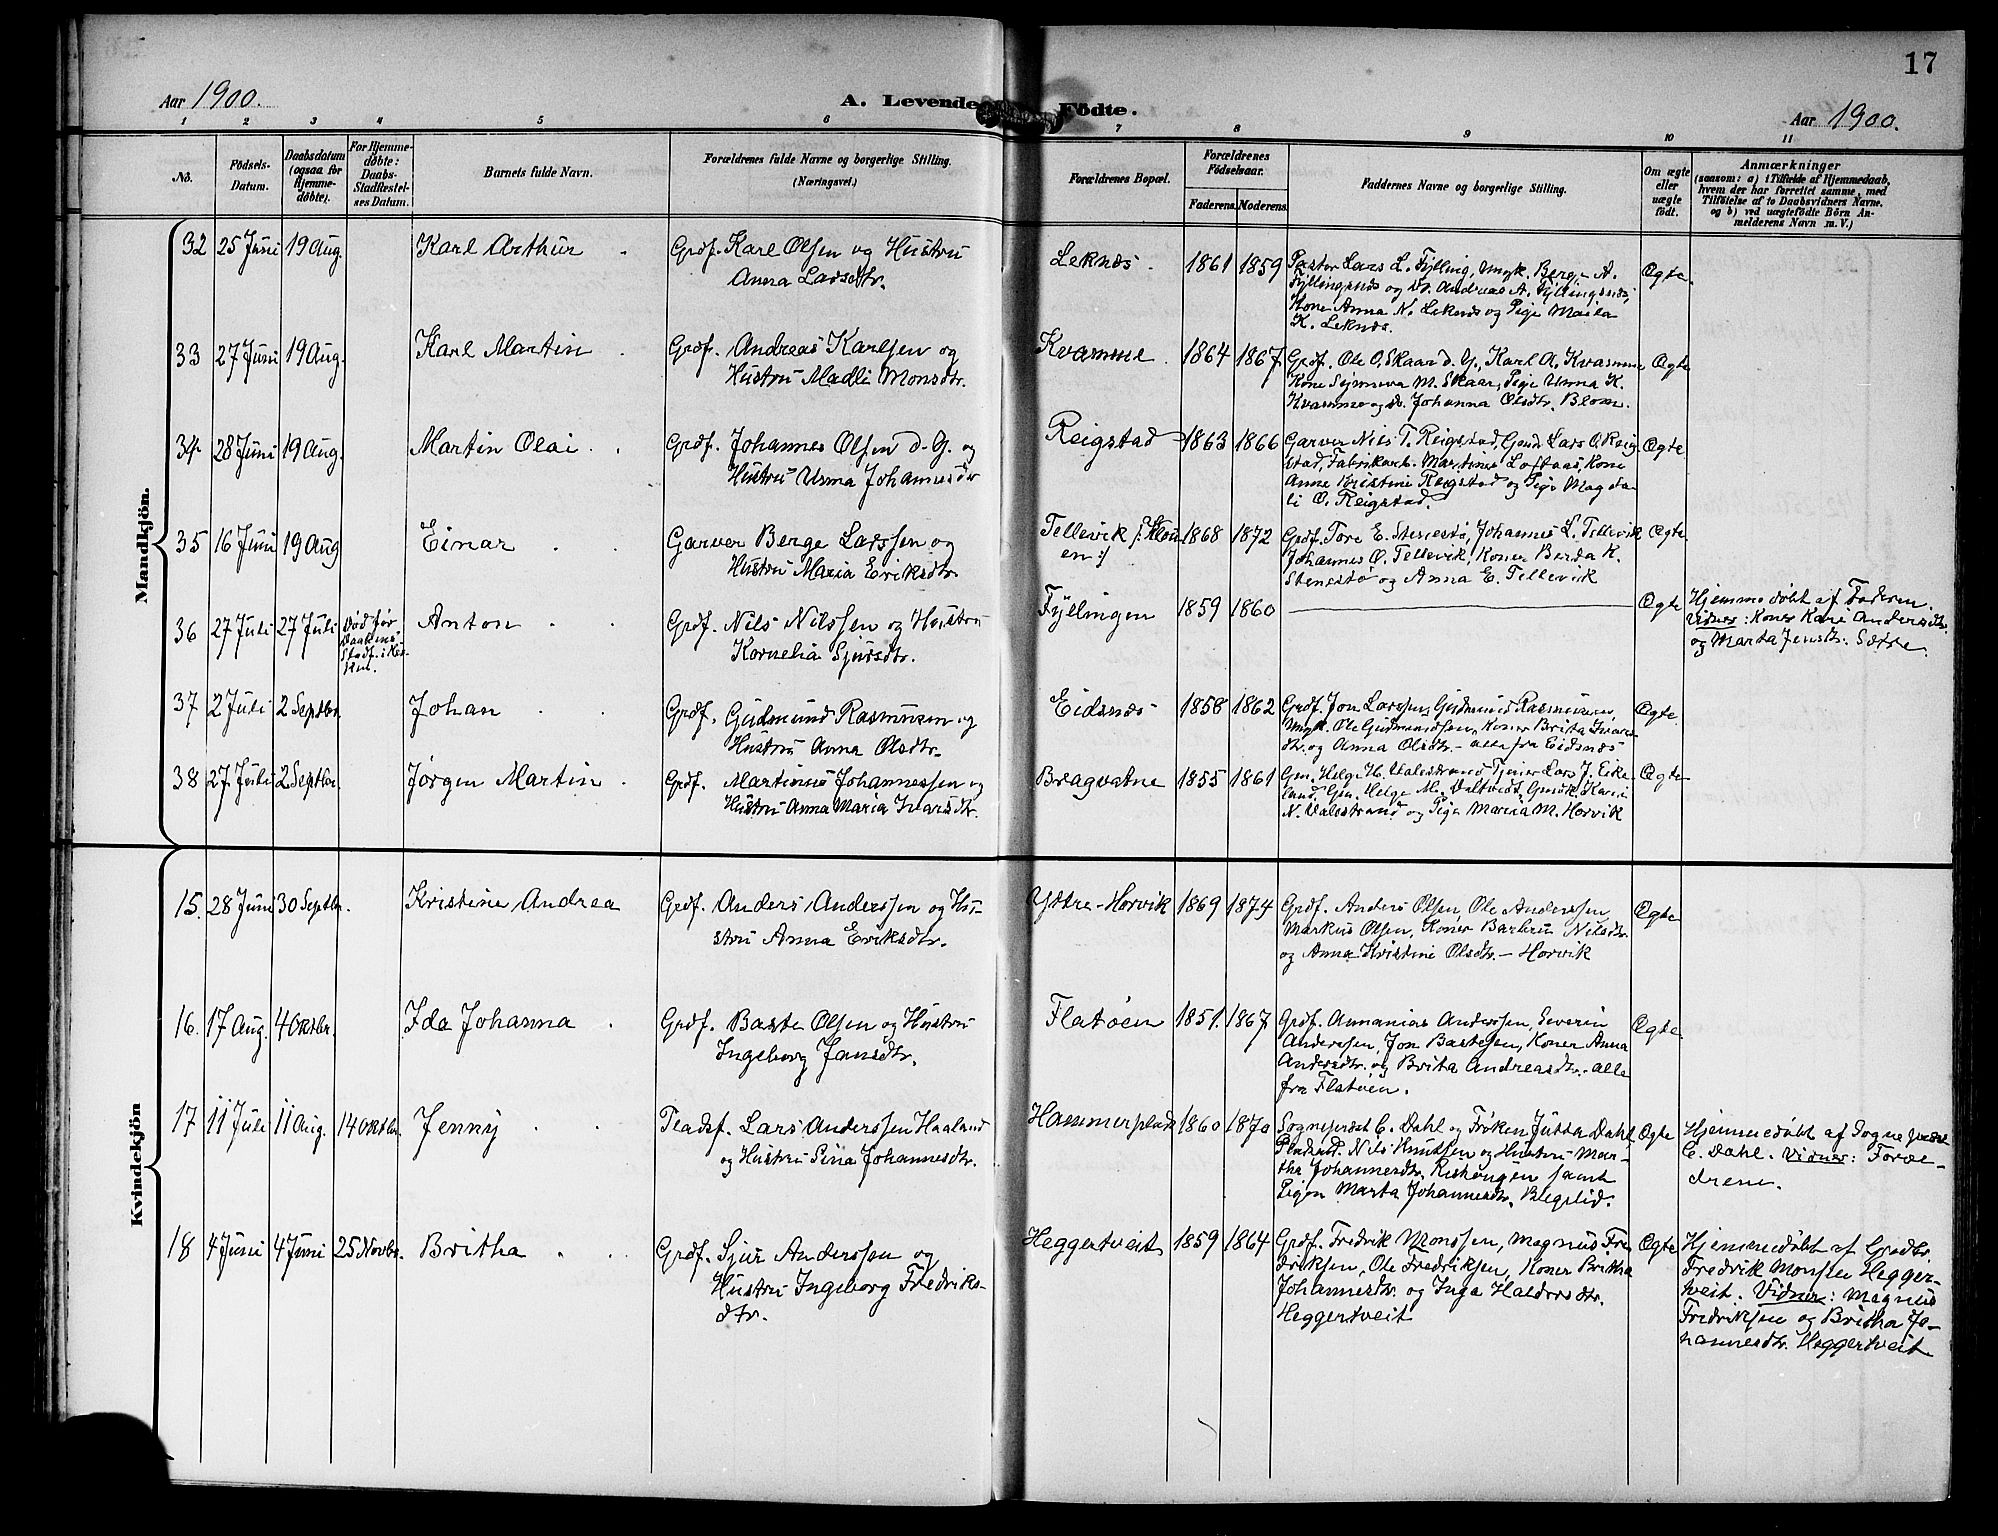 17
Aar 1900.
A. Levende Födte.
Aar 1900.
1 2 3 4 5 6 7 8 9 10 11
No.
Födsels-
Datum.
Daabsdatum
(ogsaa for
Hjemme-
döbte).
For Hjemme-
døbte:
Daabs-
Stadfæstel-
ses Datum.
Barnets fulde Navn.
Forældrenes fulde Navne og borgerlige Stilling.
(Næringsvei.)
Forældrenes Bopæl.
Forældrenes
Födselsaar.
Faderens. Moderens.
Faddernes Navne og borgerlige Stilling.
Om ægte
eller
uægte
födt.
Anmærkninger
(saasom: a) i Tilfælde af Hjemmedaab,
hvem der har forrettet samme, med
Tilföielse af to Daabsvidners Navne.
og b) ved uægtefödte Börn An-
melderens Navn m. V.)
Mandkjön.
32 25 Juni 19 Aug. Karl Arthur
Grdf. Karl Olsen og Hustru
Anna Larsdtr.
Leknæs. 1861 1859
Pastor Lars L. Fylling, Ungk. Berge A.
Fyllingsnæs og do. Andreas A. Fyllingsnæs,
Kone Anna N. Leknæs og Pige
K. Leknæs.
Ægte.
33 27 Juni 19 Aug. Karl Martin
Grdf. Andreas Karlsen og
Hustru Madli Monsdtr.
Kvamme. 1864 1867.
Grdf. Ole O. Skaar d. y., Karl A. Kvamme
Kone Synneva M. Skaar, Pige Unna K.
Kvamme og do. Johanna Olsdtr. Blom.
Ægte
34 28 Juni 19 Aug. Martin Olai
Grdf. Johannes Olsen d. y. og
Hustru Unna Johannesdtr
Reigstad 1863 1866
Garver Nils T. Reigstad, Gmd. Lars O. Reig
stad, Fabrikarb. Martines Loftaas, Kone
Anne Kristine Reigstad og Pige Magda-
li O. Reigstad.
Ægte
35 16 Juni 19 Aug Einar
Garver Berge Larssen og
Hustru Maria Eriksdtr.
Tellevik /: Klou
en:/ 1868 1872
Grdf. Tore E. Stenestø, Johannes L. Tellevik
Johannes O. Tellevik, Koner Berda K.
Stenestø og Anna E. Tellevik
Ægte
36 27 Juli 27 Juli
Død før
Daabens
Stadf. i Kir
ken.
Anton
Grdf. Nils Nilssen og Hustru
Kornelia Sjursdtr.
Fyllingen 1859 1860
Ægte
Hjemmedøbt af Faderen.
Vidner: Kone Kari Andersdtr.
og Marta Jensdtr. Sætre.
37 2 Juli 2 Septbr. Johan
Grdf. Gudmund Rasmussen og
Hustru Anna Olsdtr.
Eidsnæs 1858 1862
Grdf. Jon Larssen, Gudmund Rasmussen,
Ungk. Ole Gudmundssen, Koner Brita Ivars-
dtr. og Anna Olsdtr. - alle fra Eidsnæs
Ægte.
38 27 Juli 2 Septbr. Jørgen Martin
Grdf. Martinus Johannessen og
Hustru Anna Maria Ivarsdtr.
Bragvatne 1855 1861
Gm. Helge H. Valestrand, Tjener Lars J. Eike
land, Gm. Helge M. Gmdk. Kari
N. Valestrand og Pige Marina M. Horvik
Ægte
Kvindekjön
15. 28 Juni 30 Septbr. Kristine Andrea
Grdf. Anders Anderssen og Hu-
stru Anna Eriksdtr.
Yttre-Horvik 1869 1874
Grdf. Anders Olsen, Ole Anderssen,
Markus Olsen, Koner Barbru Nilsdtr.
og Anna Kristine Olsdtr. - Horvik
Ægte
16. 17 Aug. 4 Oktbr. Ida Johanna
Grdf. Baste Olsen og Hustru
Ingeborg Jansdtr.
Flatøen 1851. 1867
Grdf. Annanias Anderssen, Severin
Anderssen, Jon Bastesen, Koner Anna
Andersdtr. og Brita Andreasdtr. - alle
fra Flatøen.
Ægte
17 11 Juli 11 Aug. 14 Oktbr. Jenny
Pladsf. Lars Anderssen Haaland
og Hustru Sina Johannesdtr.
Hammerplads 1860 1870
Sogneprest C. Dahl og Frøken Jutta Dahl,
Pladsmd. Nils Knutsen og Hustru Mar-
tha Johannesdtr. Risköngen samt
Pigen Marta Johannesdtr. Bugslid.
Ægte
Hjemmedøbt af Sogneprest
C. Dahl. Vidner: Foræl-
drene.
18 4 Juni 4 Juni 25 Novbr. Britha
Grdf. Sjur Anderssen og
Hustru Ingeborg Fredriks-
dtr.
Heggertveit 1859 1864
Grdf. Fredrik Monssen, Magnus Fre
driksen, Ole Fredriksen, Koner Britha
Johannesdtr. og Inga Haldorsdtr.
Heggertveit
Ægte
Hjemmedøbt af Grdbr.
Fredrik Monsen Hegger-
tveit. Vidner: Magnus
Fredriksen og Britha Jo-
hannesdtr. Heggertveit